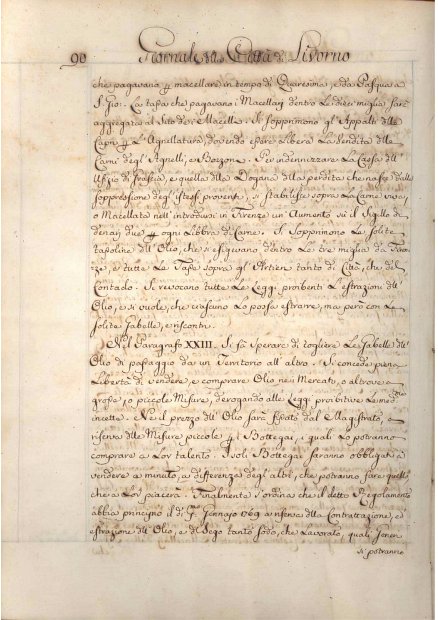 90 Giornale della Città di Livorno
che pagavano p macellare in tempo di Quaresima, e da Pasqua a
S. Gio: La tassa che pagavano i Macellarj dentro Le dieci miglia sarà
aggregata al Sito de i Macelli. Si soppnimono gl' Appalti dlle
Capre p L' Agnellatura, dovendo essere Libera La Vendita dlle
Carni degl' Agnelli, e Bozzone. Per indennizzare La Cassa dll'
Ufizio di Grascia, e quella dlla Dogana dlla perdita che nasce dalla
soppressione degl' istessi proventi, si stabilisce sopra La Carne viva,
o Macellata nell' introdursi in Firenze un' Aumento sù il Sigillo di
denaj due p ogni Libbra di Carne. Si soppnimono Le solite
tassoline dll' Olio, che si esigevano dentro Le tre miglia da Firen-
ze, e tutte Le Tasse sopra gl' Artieri tanto di Città, che del
Contado. Si revocano tutte Le Leggi proibenti L' estrazioni dll'
Olio, e si vuole, che ciascuno Lo possa estrarre, ma però con La
solite Gabelle, e riscontri.
Nel Paragrafo XXIII. Si fà Sperare di togliere Le Gabelle dll'
Olio di passaggio da un Territorio all' altro. Si concede piena
Libertà di vendere, e comprare Olio nei Mercati, o altrove a
grosse, o piccole Misure, derogando alle Leggi proibitive Le med.
incette. Nè il prezzo dll' Olio sarà fissato dal Magistrato, a
riserva dlle Misure piccole p i Bottegai, i quali Lo potranno
comprare a Lor talento. I soli Bottegai saranno obbligati a
vendere a minuto, a differenza degl' altri, che potranno fare quello
che a Lor piacerà. Finalmente s' ordina che il detto Regolamento
abbia principio il dì p. Gennajo 1769 a riserva dlla Contrattazione, e
estrazione d' Olio, e di Sego tanto sodo, che Lavorato, quali s' inten
si potranno